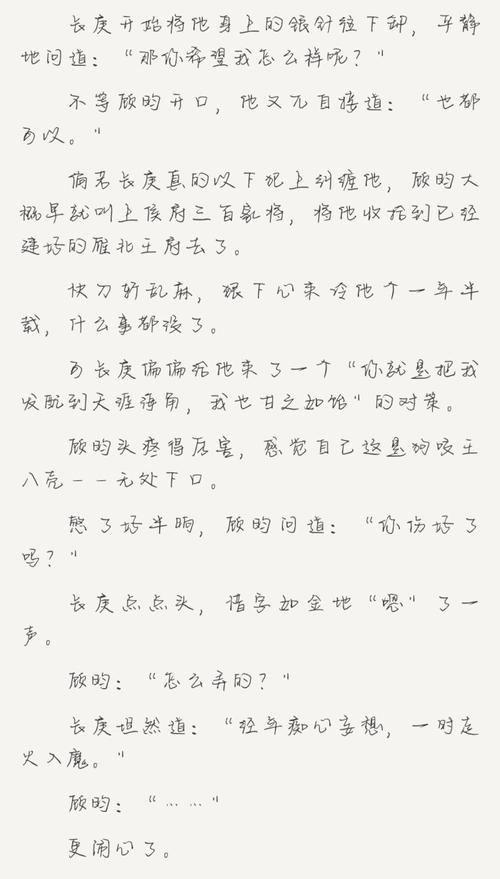 长庚开始将他身上的银针往下卸，平静
地问道：“那你希望我怎么样呢？”
不等顾昀开口，他又兀自接道：“也都
可以。”
倘若长庚真的以下犯上纠缠他，顾昀大
概早就叫上侯府三百家将，将他收拾到已经
建好的雁北王府去了。
快刀斩乱麻，狠下心来冷他个一年半
载，什么事都没了。
可长庚偏偏给他来了一个“你就是把我
发配到天涯海角，我也甘之如饴”的对策。
顾昀头疼得厉害，感觉自己这是狗咬王
八壳——无处下口。
憋了好半晌，顾昀问道：“你伤好了
吗？”
长庚点点头，惜字如金地“嗯”了一
声。
顾昀：“怎么弄的？”
长庚坦然道：“经年痴心妄想，一时走
火入魔。”
顾昀：“……”
更闹心了。